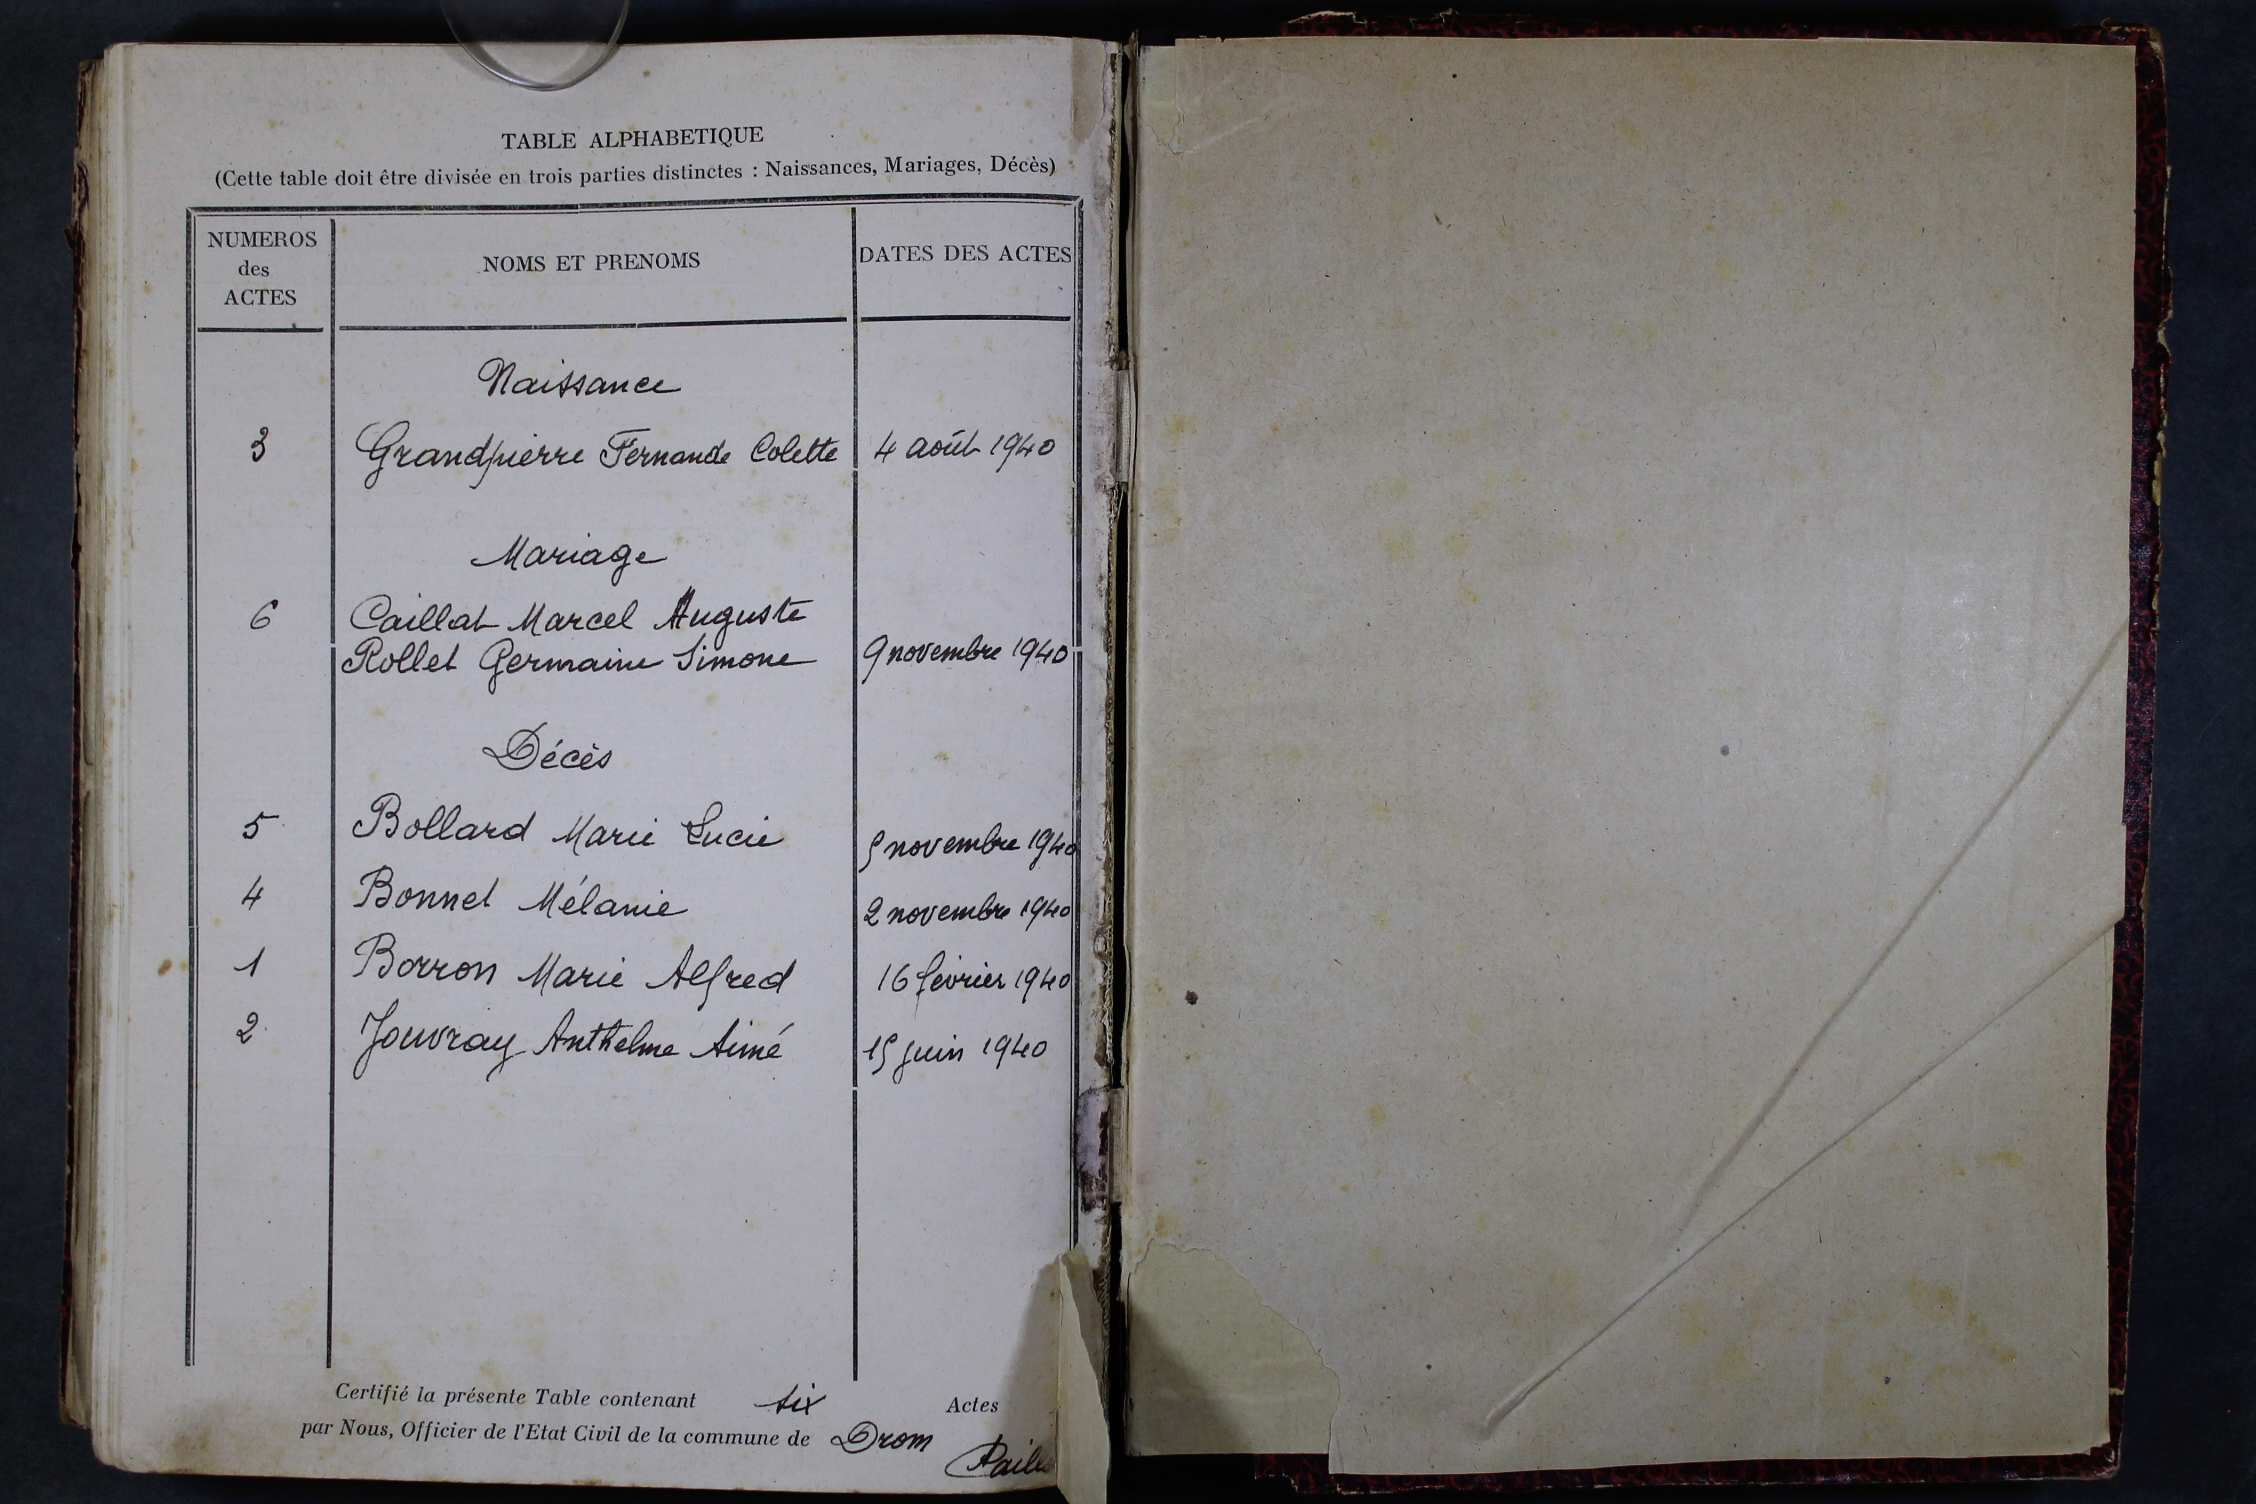 TABLE ALPHABETIQUE
(Cette table doit être divisée en trois parties distinctes : Naissances, Mariages, Décès)
NUMEROS
des
ACTES
NOMS ET PRENOMS
DATES DES ACTES
Naissance
3 Grandpierre Fernande Colette 4 août 1940
Mariage
6 Caillat Marcel Auguste
Rollet Germaine Simone 9 novembre 1940
Décès
5 Bollard Marie Lucie 5 novembre 1940
4 Bonnet Mélanie 2 novembre 1940
1 Borron Marie Alfred 16 février 1940
2 Jouvray Anthelme Aimé 15 juin 1940
Certifié la présente Table contenant six Actes
par Nous, Officier de l'Etat Civil de la commune de Drom